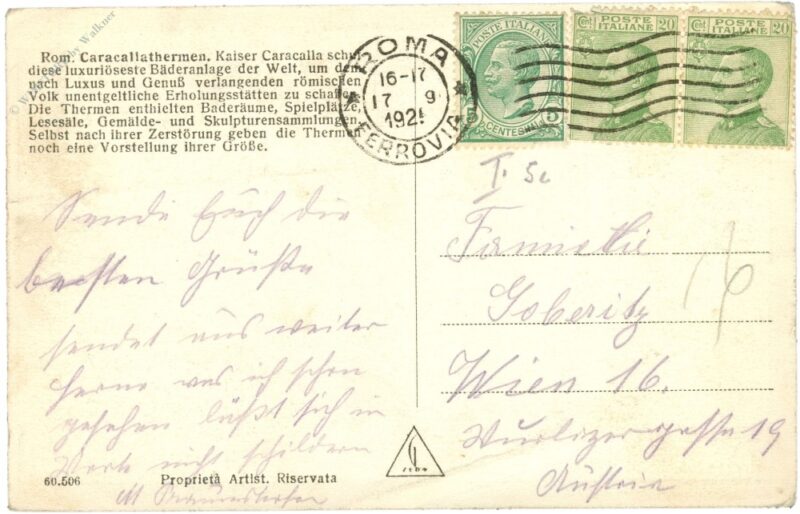 Rom. Caracallathermen. Kaiser Caracalla schuf
diese luxuriöseste Bäderanlage der Welt, um dem
nach Luxus und Genuß verlangenden römischen
Volk unentgeltliche Erholungsstätten zu schaffen.
Die Thermen enthielten Baderäume, Spielplätze,
Lesesäle, Gemälde- und Skulpturensammlungen.
Selbst nach ihrer Zerstörung geben die Thermen
noch eine Vorstellung ihrer Größe.
ROMA
16-17
17 9
192
FERROVIA
POSTE ITALIANE
CENTESIMI 5
Cent POSTE ITALIANE 20
Cent POSTE ITALIANE 20
Sende Euch die
besten Grüße
sendet aus weiter
ferne was ich schon
gesehen läßt sich in
Worte nicht schildern
M
Familie
Goberitz
Wien 16.
Wurlizergasse 19
Austria
60.506
Proprietà Artist. Riservata
© by Walkner